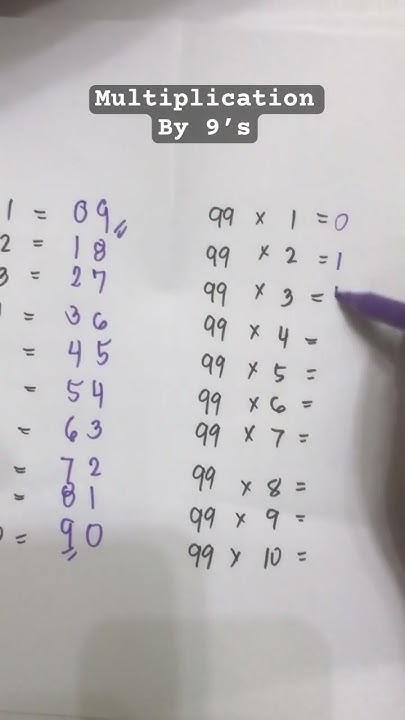 Multiplication
By 9’s
1 = 09
2 = 18
3 = 27
= 36
= 45
= 54
= 63
= 72
= 81
0 = 90
99 x 1 = 0
99 x 2 = 1
99 x 3 =
99 x 4 =
99 x 5 =
99 x 6 =
99 x 7 =
99 x 8 =
99 x 9 =
99 x 10 =